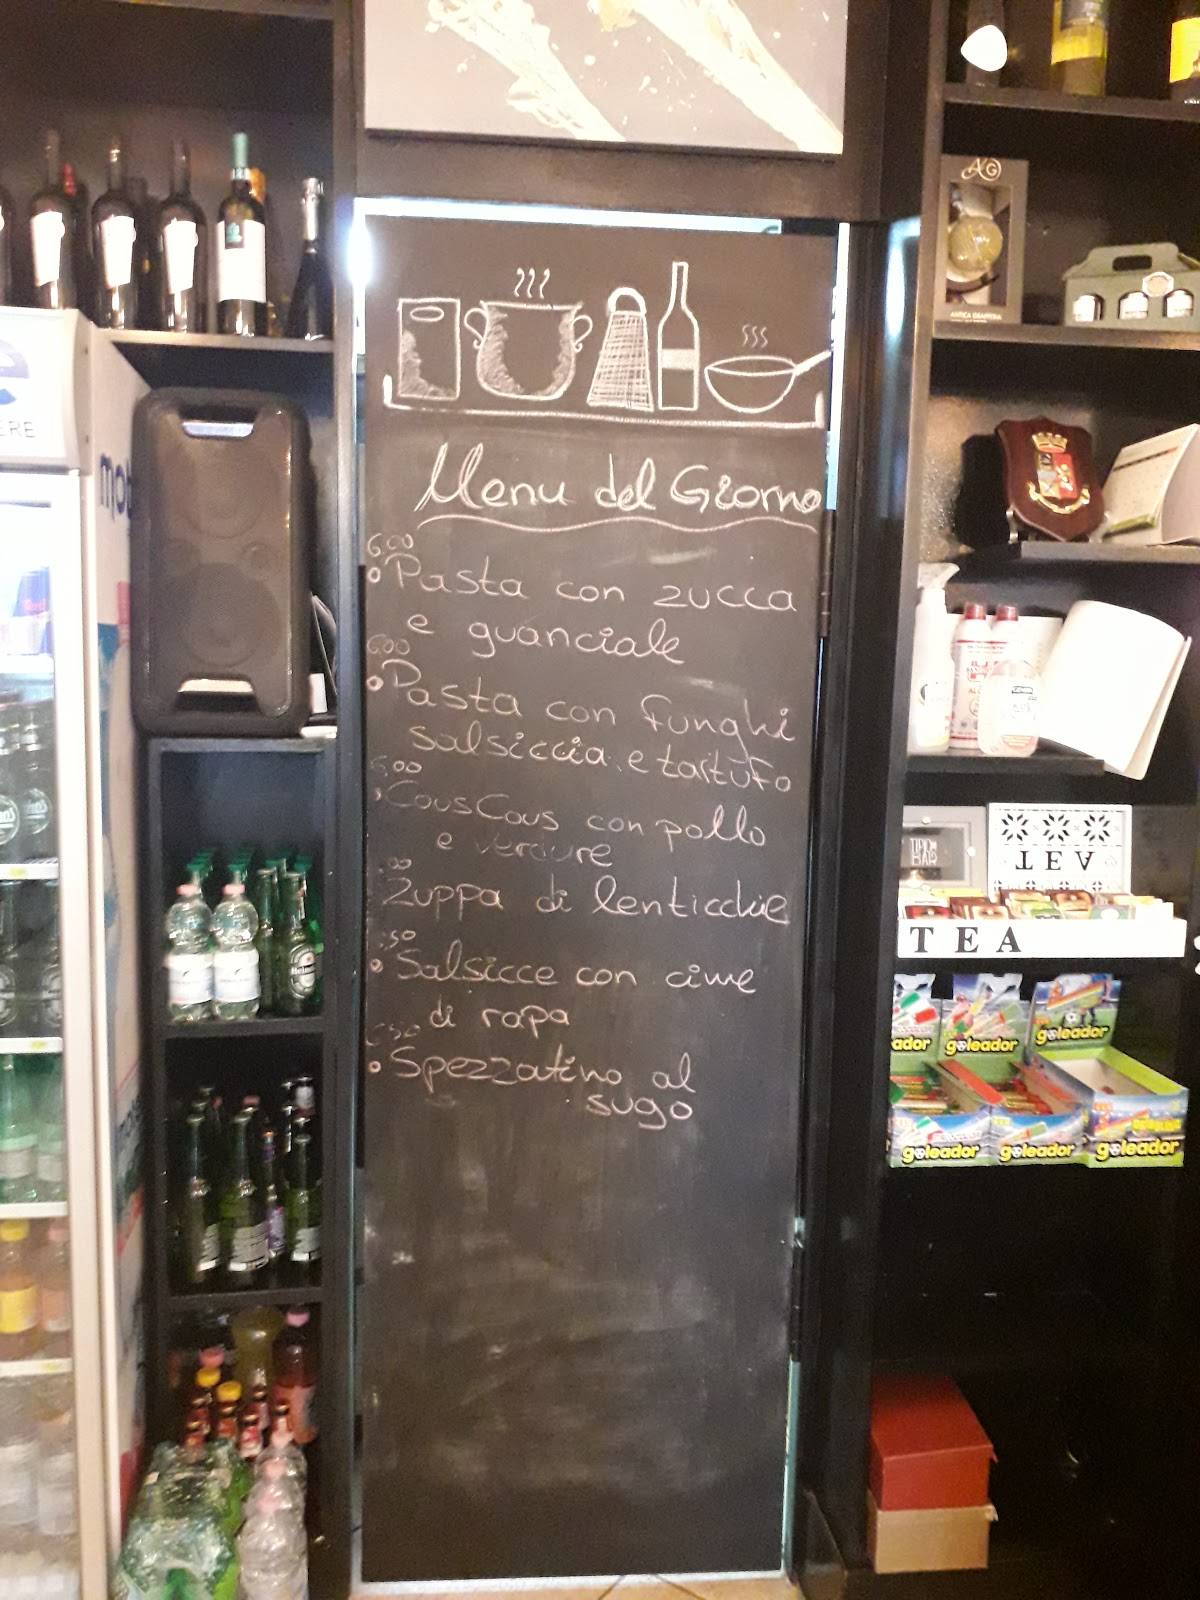 AG
ANTICA
ERE
mob
Menu del Giorno
6,00
Pasta con zucca
e guanciale
6,00
Pasta con funghi
salsiccia e tartufo
,00
CousCous con pollo
e verdure
,00
Zuppa di lenticchie
,50
Salsicce con cime
di rapa
6,50
Spezzatino al
sugo
Heineken
TEA
TEA
goleador
goleador
goleador
goleador
goleador
goleador